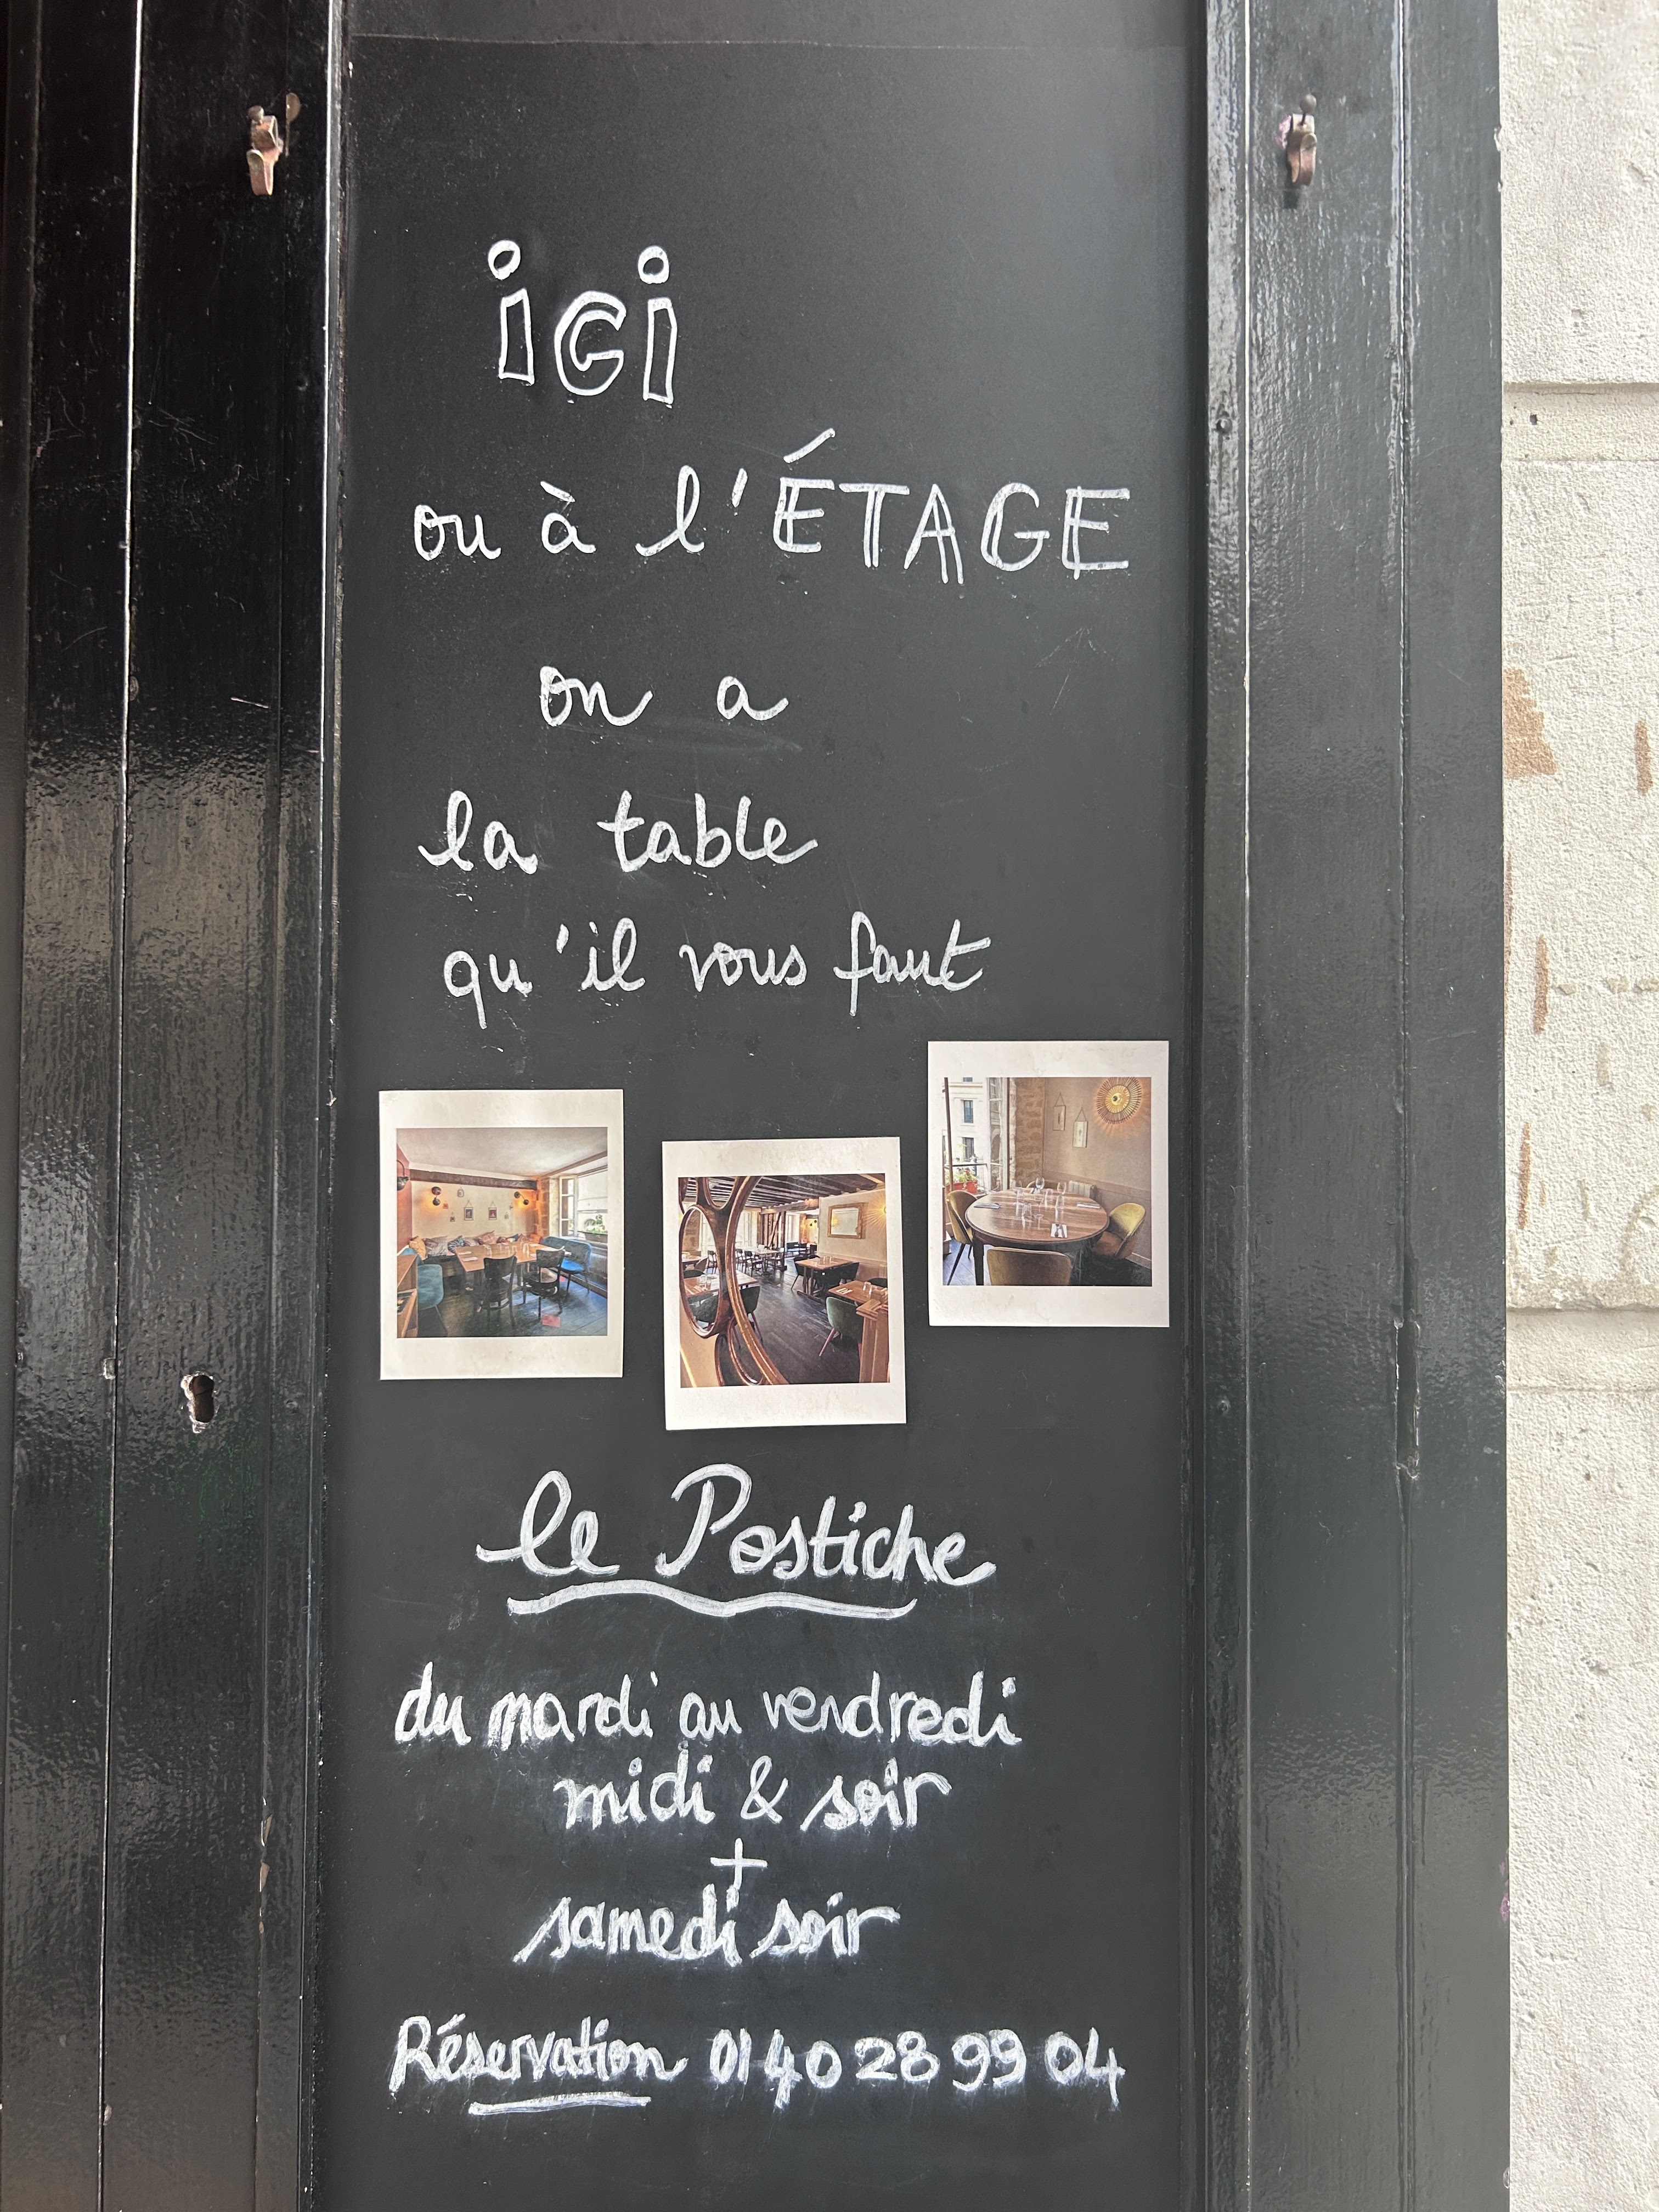 ici
ou à l'ÉTAGE
on a
la table
qu'il vous faut
le Postiche
du mardi au vendredi
midi & soir
+
samedi soir
Réservation 01 40 28 99 04